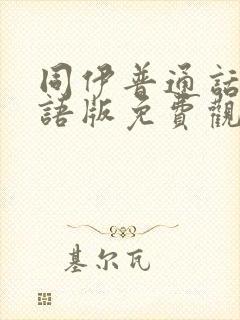 同伊普通話
語版免費觀
基尔瓦